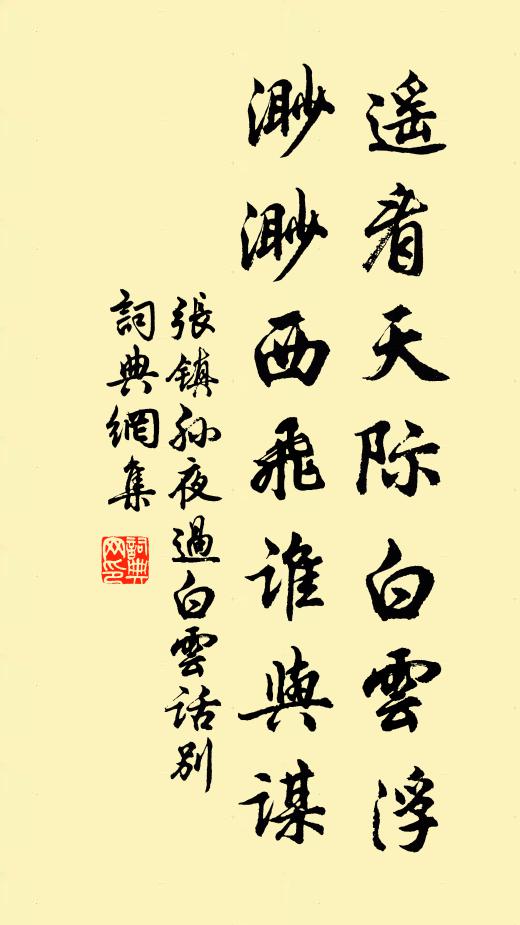 遥看天际白雲浮
渺渺西飛誰與謀
張镇孙夜過白雲話别
詞典網集
詞典网印